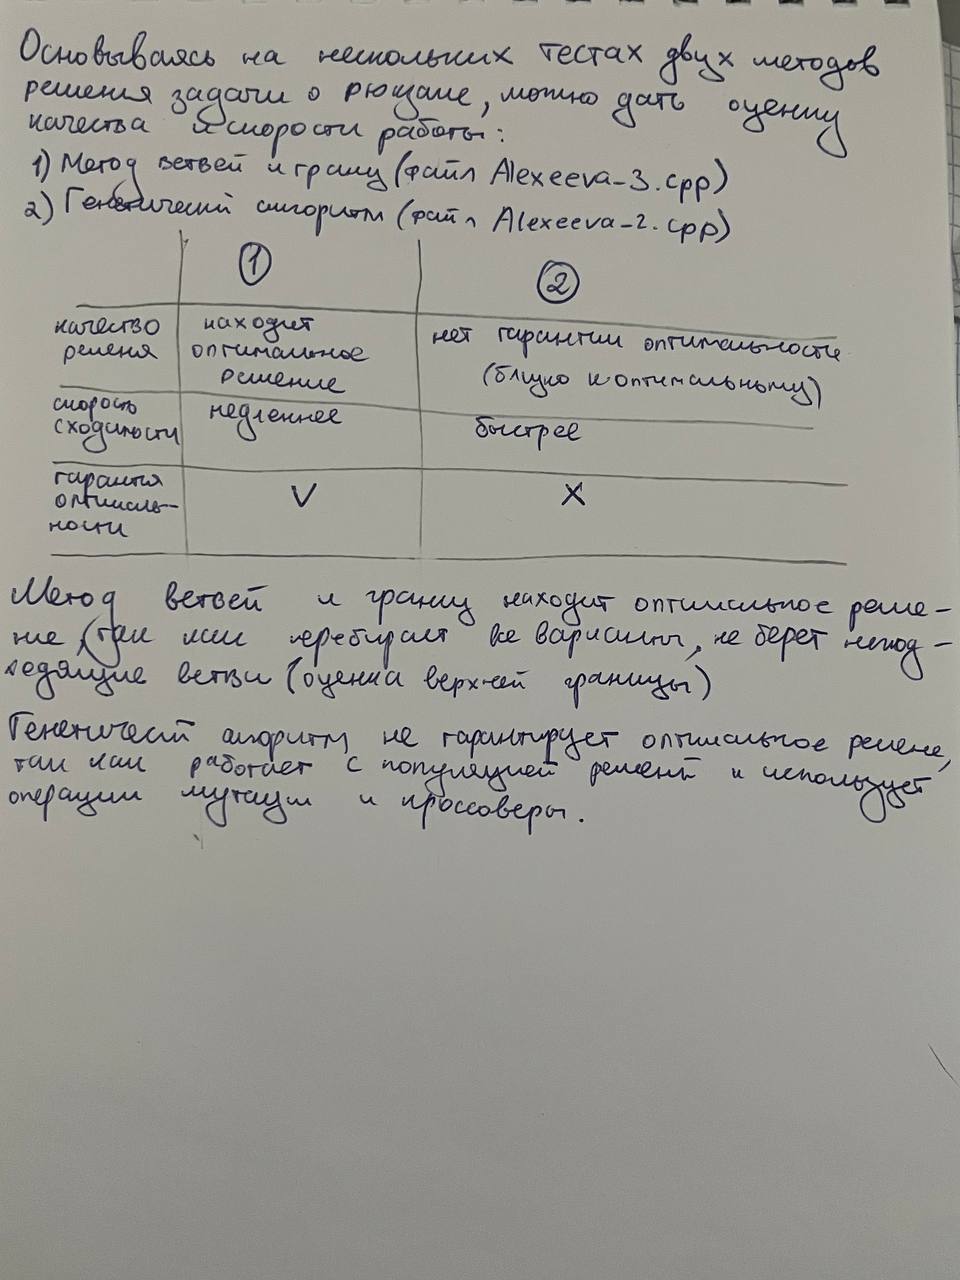 Основываясь на нескольких тестах двух методов
решения задачи о рюкзаке, можно дать оценку
качества и скорости работы:
1) Метод ветвей и границ (файл Alexeeva-3.cpp)
2) Генетический алгоритм (файл Alexeeva-2.cpp)
1 2
качество решения
находит оптимальное решение
нет гарантии оптимальности (близко к оптимальному)
скорость сходимости
медленнее
быстрее
гарантия оптимально-
ности
V X
Метод ветвей и границ находит оптимальное реше-
ние, (так как перебирает все варианты, не берет непод-
ходящие ветви (оценка верхней границы)
Генетический алгоритм не гарантирует оптимальное решение,
так как работает с популяцией решений и использует
операции мутации и кроссоверы.